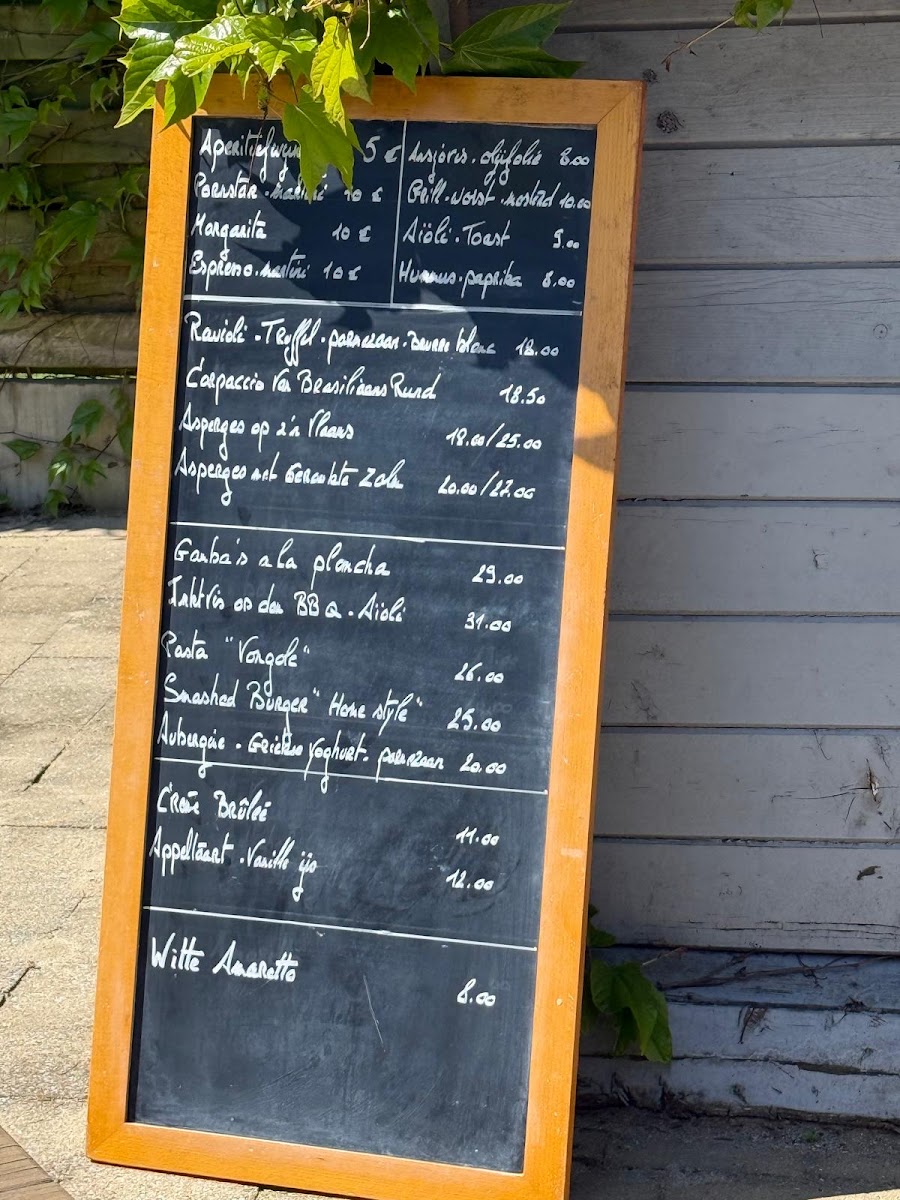 5 €
Pornstar · martini 10 €
Margarita 10 €
Espresso · martini 10 €
Ansjovis · olijfolie 8.00
Grill · worst · mosterd 10.00
Aïoli · Toast 5.00
Hummus · paprika 8.00
Ravioli · Truffel · parmezaan · beurre blanc 18.00
Carpaccio van Brasiliaans Rund 18.50
Asperges op z'n Vlaams 18.00/25.00
Asperges met Gerookte Zalm 20.00/27.00
Gamba's a la plancha 29.00
Inktvis op den BBQ · Aïoli 31.00
Pasta "Vongole" 26.00
Smashed Burger "Home style" 25.00
Aubergine · Griekse Yoghurt · parmezaan 20.00
Crème Brûlée 11.00
Appeltaart · Vanille ijs 12.00
Witte Amaretto 8.00